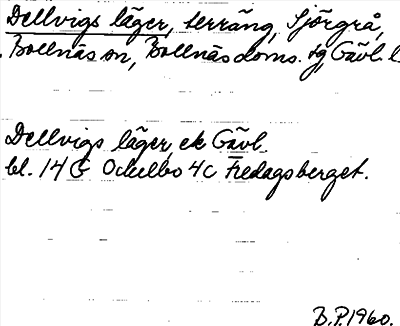 Dellvigs läger, terräng, Sjörgrå,
Bollnäs sn, Bollnäs doms. tg, Gävl. l
Dellvigs läger, ek Gävl.
bl. 14 G Ockelbo 4c Fredagsberget.
B.P. 1960.